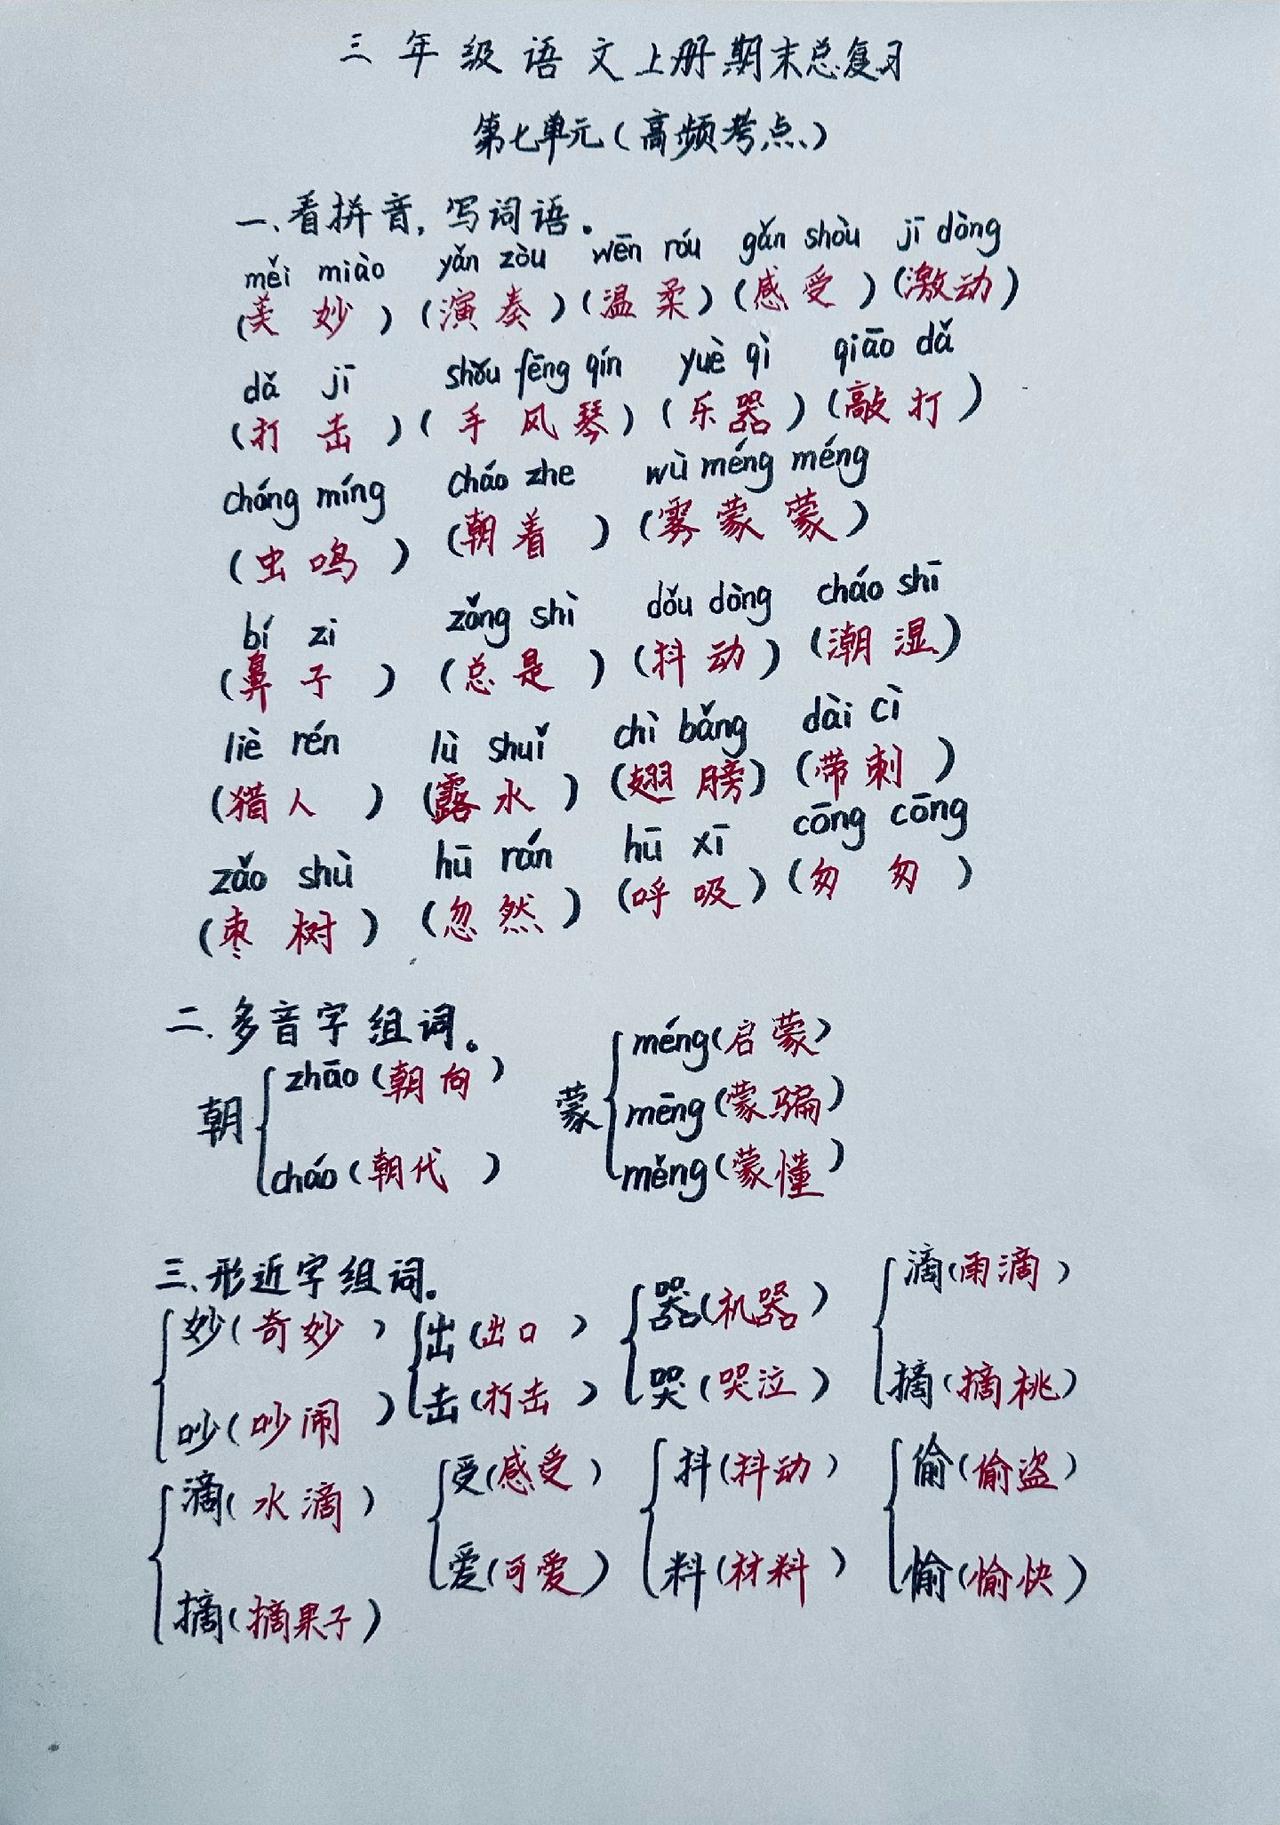 三年级语文上册期末总复习
第七单元(高频考点)
一、看拼音,写词语。
měi miào yǎn zòu wēn róu gǎn shòu jī dòng
(美妙)(演奏)(温柔)(感受)(激动)
dǎ jī shǒu fēng qín yuè qì qiāo dǎ
(打击)(手风琴)(乐器)(敲打)
chóng míng cháo zhe wù méng méng
(虫鸣)(朝着)(雾蒙蒙)
bí zi zǒng shì dǒu dòng cháo shī
(鼻子)(总是)(抖动)(潮湿)
liè rén lù shuǐ chì bǎng dài cì
(猎人)(露水)(翅膀)(带刺)
zǎo shù hū rán hū xī cōng cōng
(枣树)(忽然)(呼吸)(匆匆)
二.多音字组词。
朝 zhāo(朝向) cháo(朝代)
蒙 méng(启蒙) mēng(蒙骗) měng(蒙懂)
三、形近字组词。
妙(奇妙) 出(出口) 器(机器) 滴(雨滴)
吵(吵闹) 击(打击) 哭(哭泣) 摘(摘桃)
滴(水滴) 受(感受) 抖(抖动) 偷(偷盗)
摘(摘果子) 爱(可爱) 料(材料) 愉(愉快)